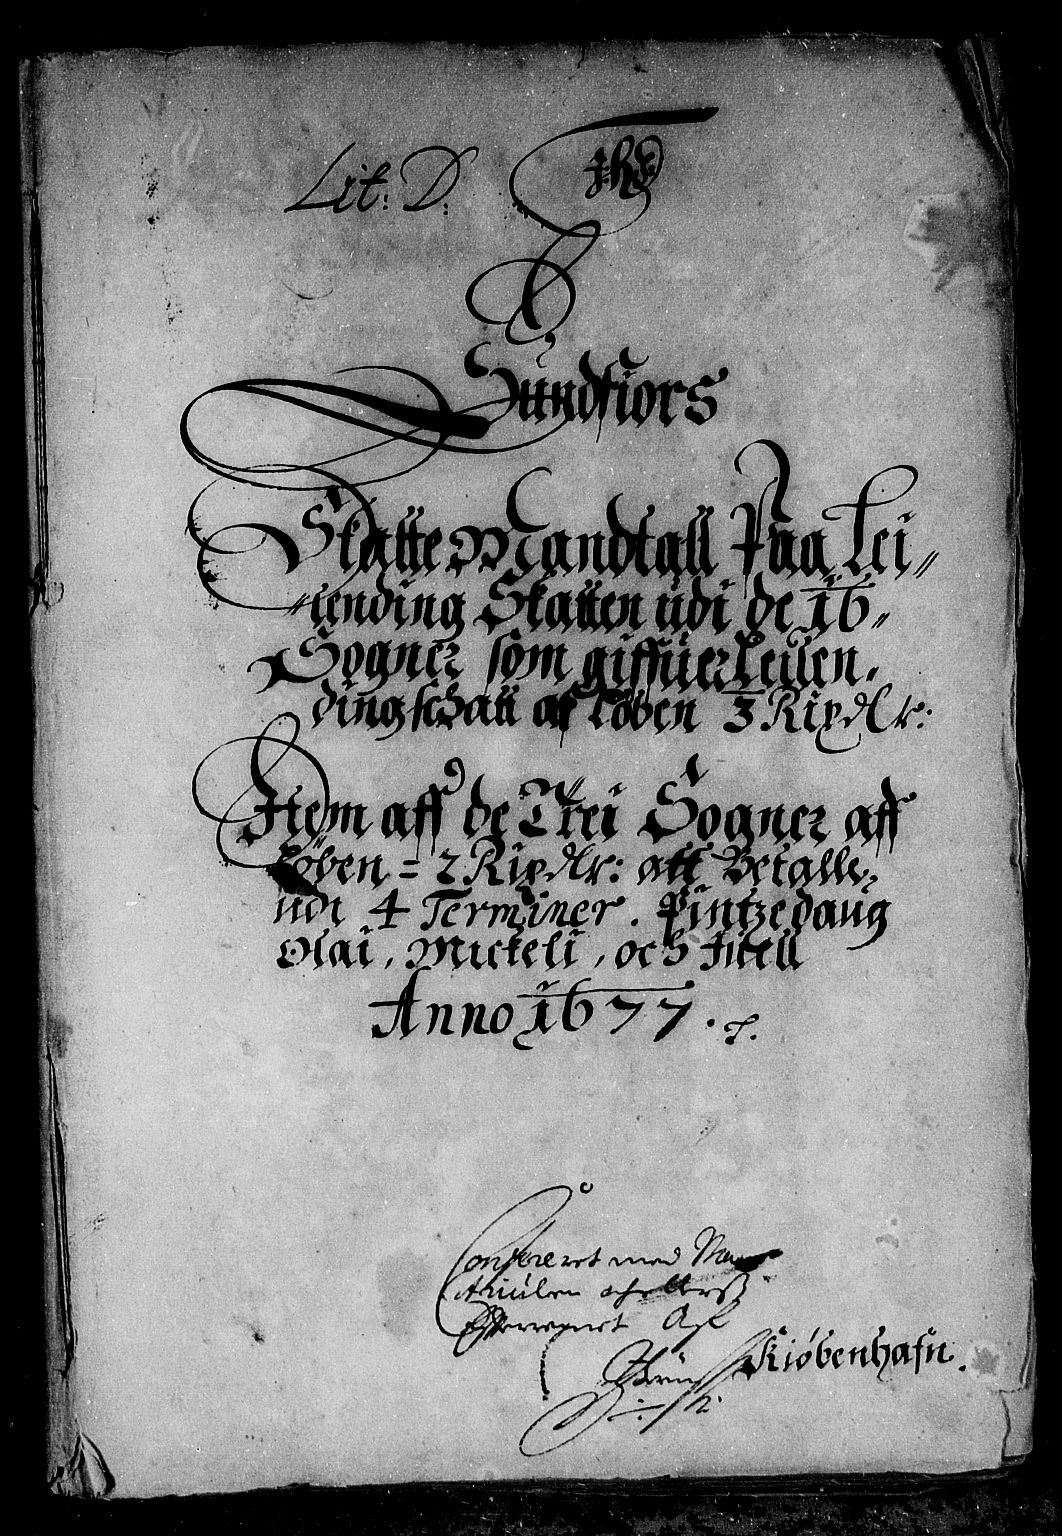 Lit: D: Jhs
Sundfiors
Skatte Mandtall Paa Lei
lending Skatten udi de 16
Sogner som giffuer Leilen
dingschatt af Löben 3 Rixdlr:
Item aff de Trei Sogner aff
Löben = 2 Rixdlr: att Betalle
udi 4 Terminer. Pintzedaug
Olai, Mickeli, och Juell
Anno 1677.
Confereret med Man
Kiöbenhafn.